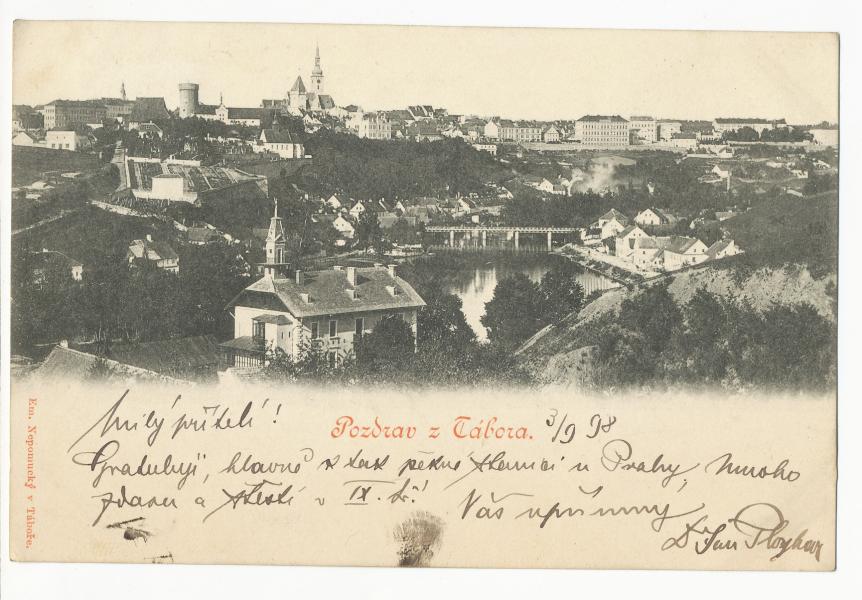 Milý příteli!
Pozdrav z Tábora. 3/9 98
Gratuluji, hlavně k tak pěkné stanici u Prahy, mnoho
zdaru a štěstí v IX. tř.!
Váš upřímný
Dr Jan
Em. Nepomucký v Táboře.